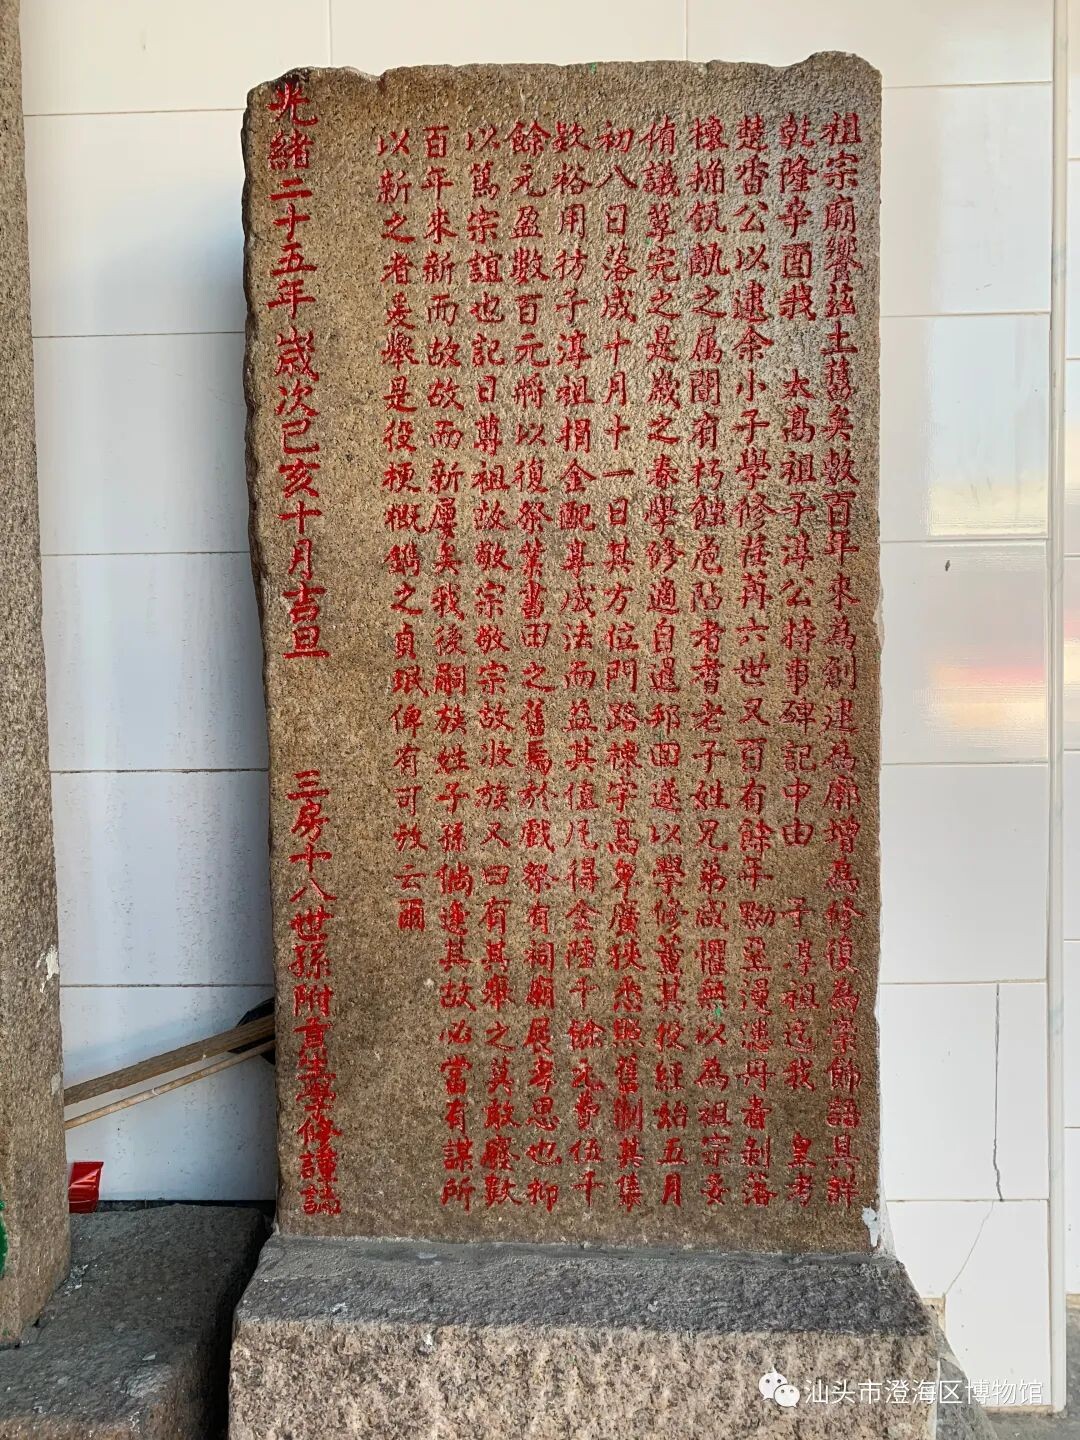 祖宗廟饗茲土舊矣數百年來為創建為廓增為修復為崇飾語具詳
乾隆辛酉我 太高祖子淳公持事碑記中由 子淳祖迄我 皇考
楚香公以逮余小子學修荏苒六世又百有餘年黝堊漫漶丹雘剝落
櫰桷甑甋之属間有朽蝕危阽者耆老子姓兄弟咸懼無以為祖宗妥
侑議葺完之是歲之春學修適自暹邦回遂以學修董其役經始五月
初八日落成十月十一日其方位門路檁宇高卑廣狹悉照舊制其集
欵裕用彷子淳祖捐金配享成法而益其值凡得金陸千餘元費伍千
餘元盈數百元將以復祭業書田之舊焉於戲祭有祠廟展孝思也抑
以篤宗誼也記曰尊祖故敬宗敬宗故收族又曰有其舉之莫敢廢歎
百年來新而故故而新屢矣我後嗣族姓子孫倘逢其故必當有謀所
以新之者爰舉是役梗概鐫之貞珉俾有可攷云爾
光緒二十五年歲次己亥十月吉旦 三房十八世孫附貢生學修謹誌
汕头市澄海区博物馆